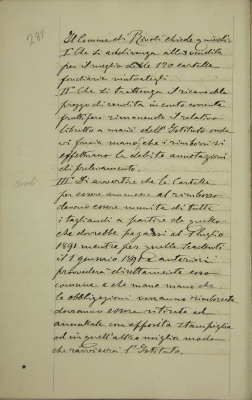 281
Il Comune di Rivoli chiede quindi:
I° Che si addivenga alla vendita
per il meglio delle 120 cartelle
fondiarie rintestategli.
II° Che si trattenga il ricavo del
prezzo di vendita in conto corrente
fruttifero rimanendo il relativo
libretto a mani dell'Istituto onde
vi faccia mano mano che i rimborsi si
effettuano le debite annotazioni
di prelevamento.
III° Di avvertire che le Cartelle
per essere ammesse al rimborso
devono essere munite di tutti
i tagliandi a partire da quello
che dovrebbe pagarsi al 1° luglio
1891 mentre per quelle scadenti
il 1° gennaio 1891 e anteriori
provvederà direttamente esso
comune e che mano mano che
le obbligazioni verranno rimborsate
dovranno essere ritirate ed
annullate con apposita stampiglia
od in quell'altro miglior modo
che ravviserà l'Istituto.